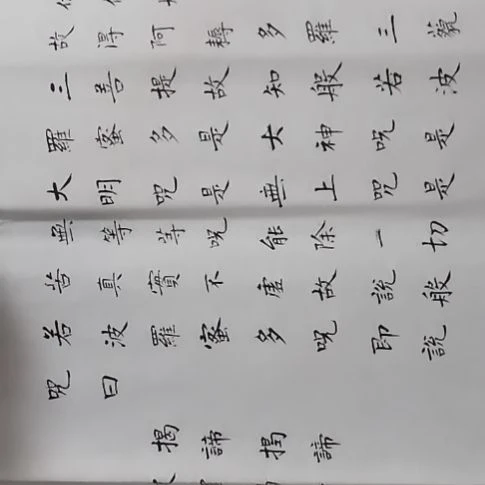 故得阿耨多羅三藐
三菩提故知般若波
羅蜜多是大神咒是
大明咒是無上咒是
無等等咒能除一切
苦真實不虛故說般
若波羅蜜多咒即說
咒曰
揭諦揭諦